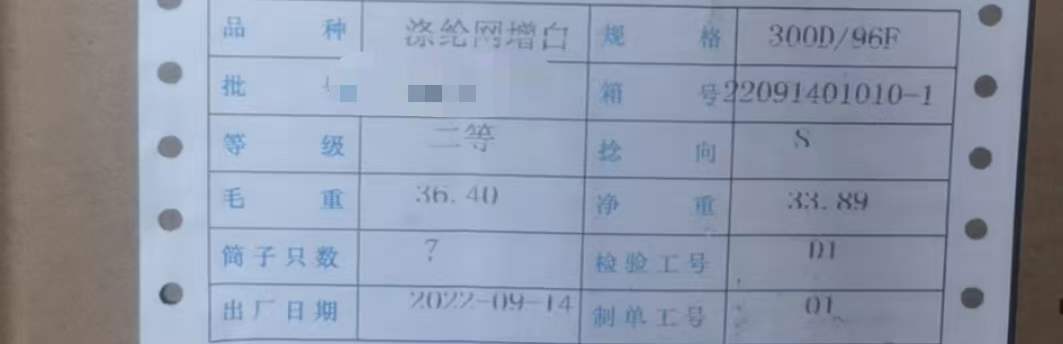 品 种 涤纶网增白 规 格 300D/96F
批 箱 号 22091401010-1
等 级 二等 捻 向 S
毛 重 36.40 净 重 33.89
筒子只数 检验工号 01
出厂日期 2022-09-14 制单工号 01